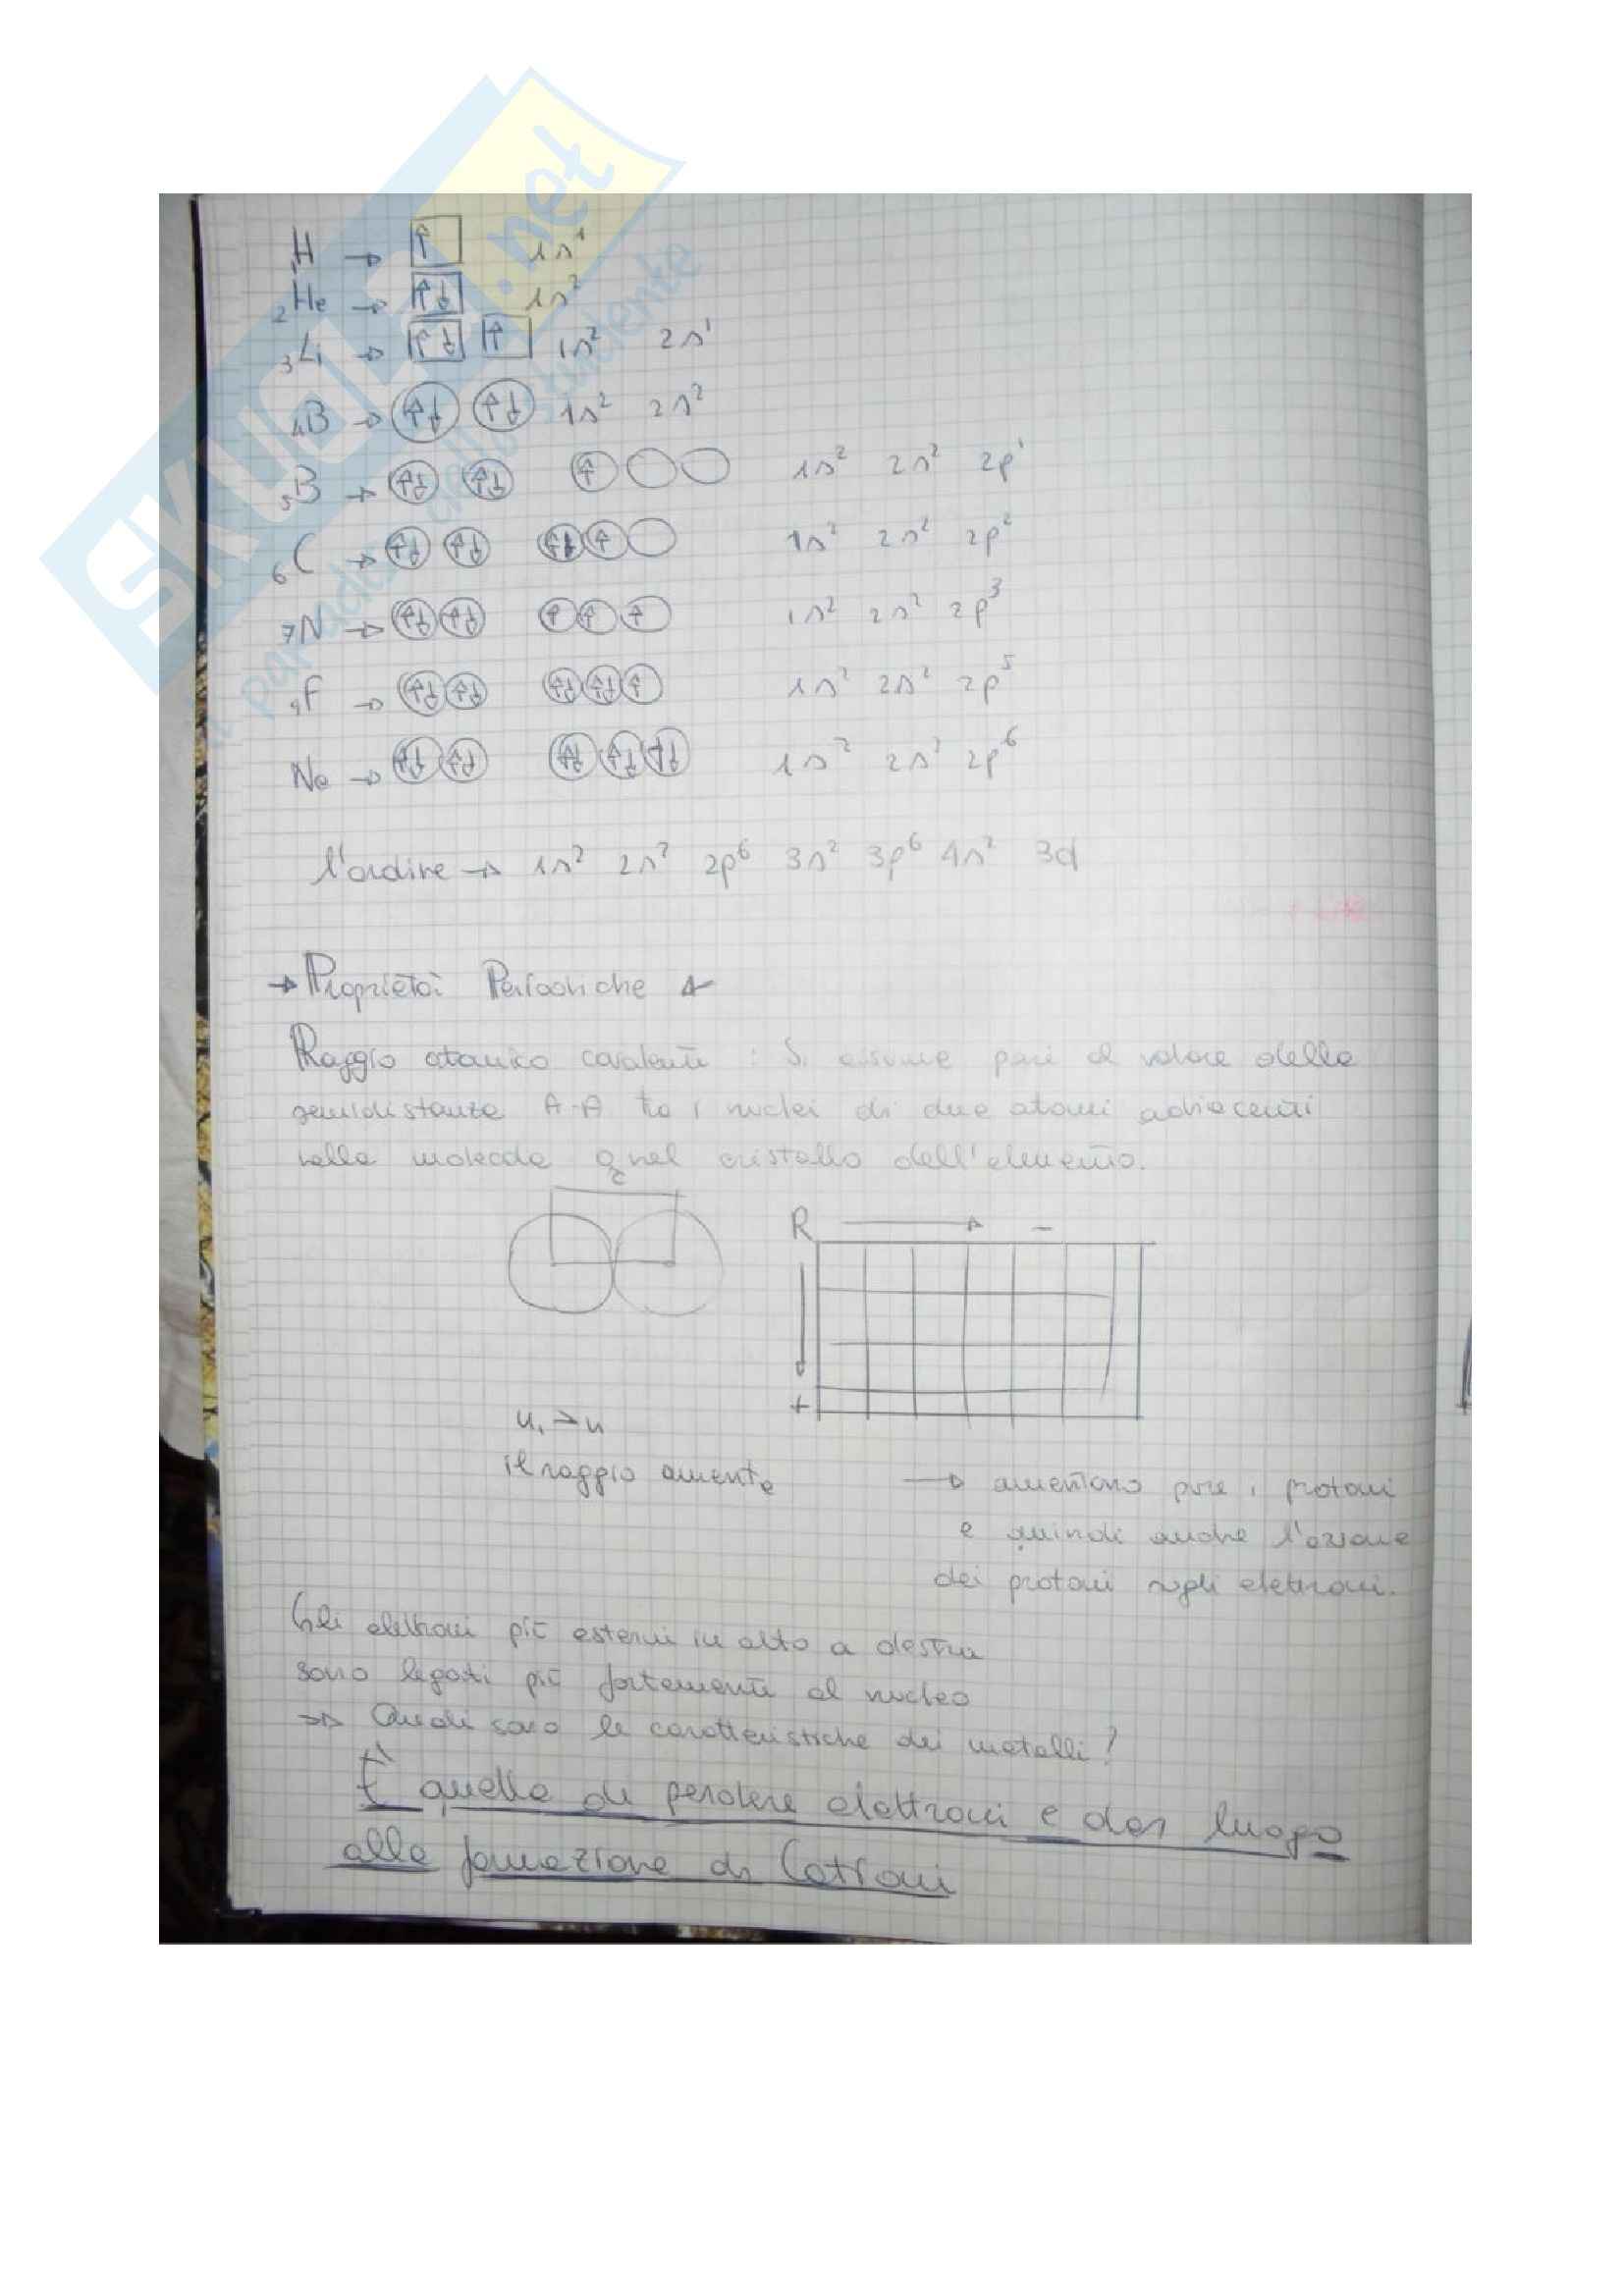 SKUOLA.net
il paradiso dello studente
₁H → ↑ 1s¹
₂He → ↑↓ 1s²
₃Li → ↑↓ ↑ 1s² 2s¹
₄B → ↑↓ ↑↓ 1s² 2s²
₅B → ↑↓ ↑↓ ↑ 1s² 2s² 2p¹
₆C → ↑↓ ↑↓ ↑ ↑ 1s² 2s² 2p²
₇N → ↑↓ ↑↓ ↑ ↑ ↑ 1s² 2s² 2p³
₉F → ↑↓ ↑↓ ↑↓ ↑↓ ↑ 1s² 2s² 2p⁵
Ne → ↑↓ ↑↓ ↑↓ ↑↓ ↑↓ 1s² 2s² 2p⁶
l'ordine → 1s² 2s² 2p⁶ 3s² 3p⁶ 4s² 3d
→ Proprietà Periodiche ←
Raggio atomico covalente : Si assume pari al valore della
semidistanza A-A tra i nuclei di due atomi adiacenti
nella molecola o nel cristallo dell'elemento.
R → -
+
n, > n
il raggio aumenta
→ aumentano pure i protoni
e quindi anche l'azione
dei protoni sugli elettroni.
Gli elettroni più esterni in alto a destra
sono legati più fortemente al nucleo
⇒ Quali sono le caratteristiche dei metalli?
È quella di perdere elettroni e dar luogo
alla formazione di Cationi